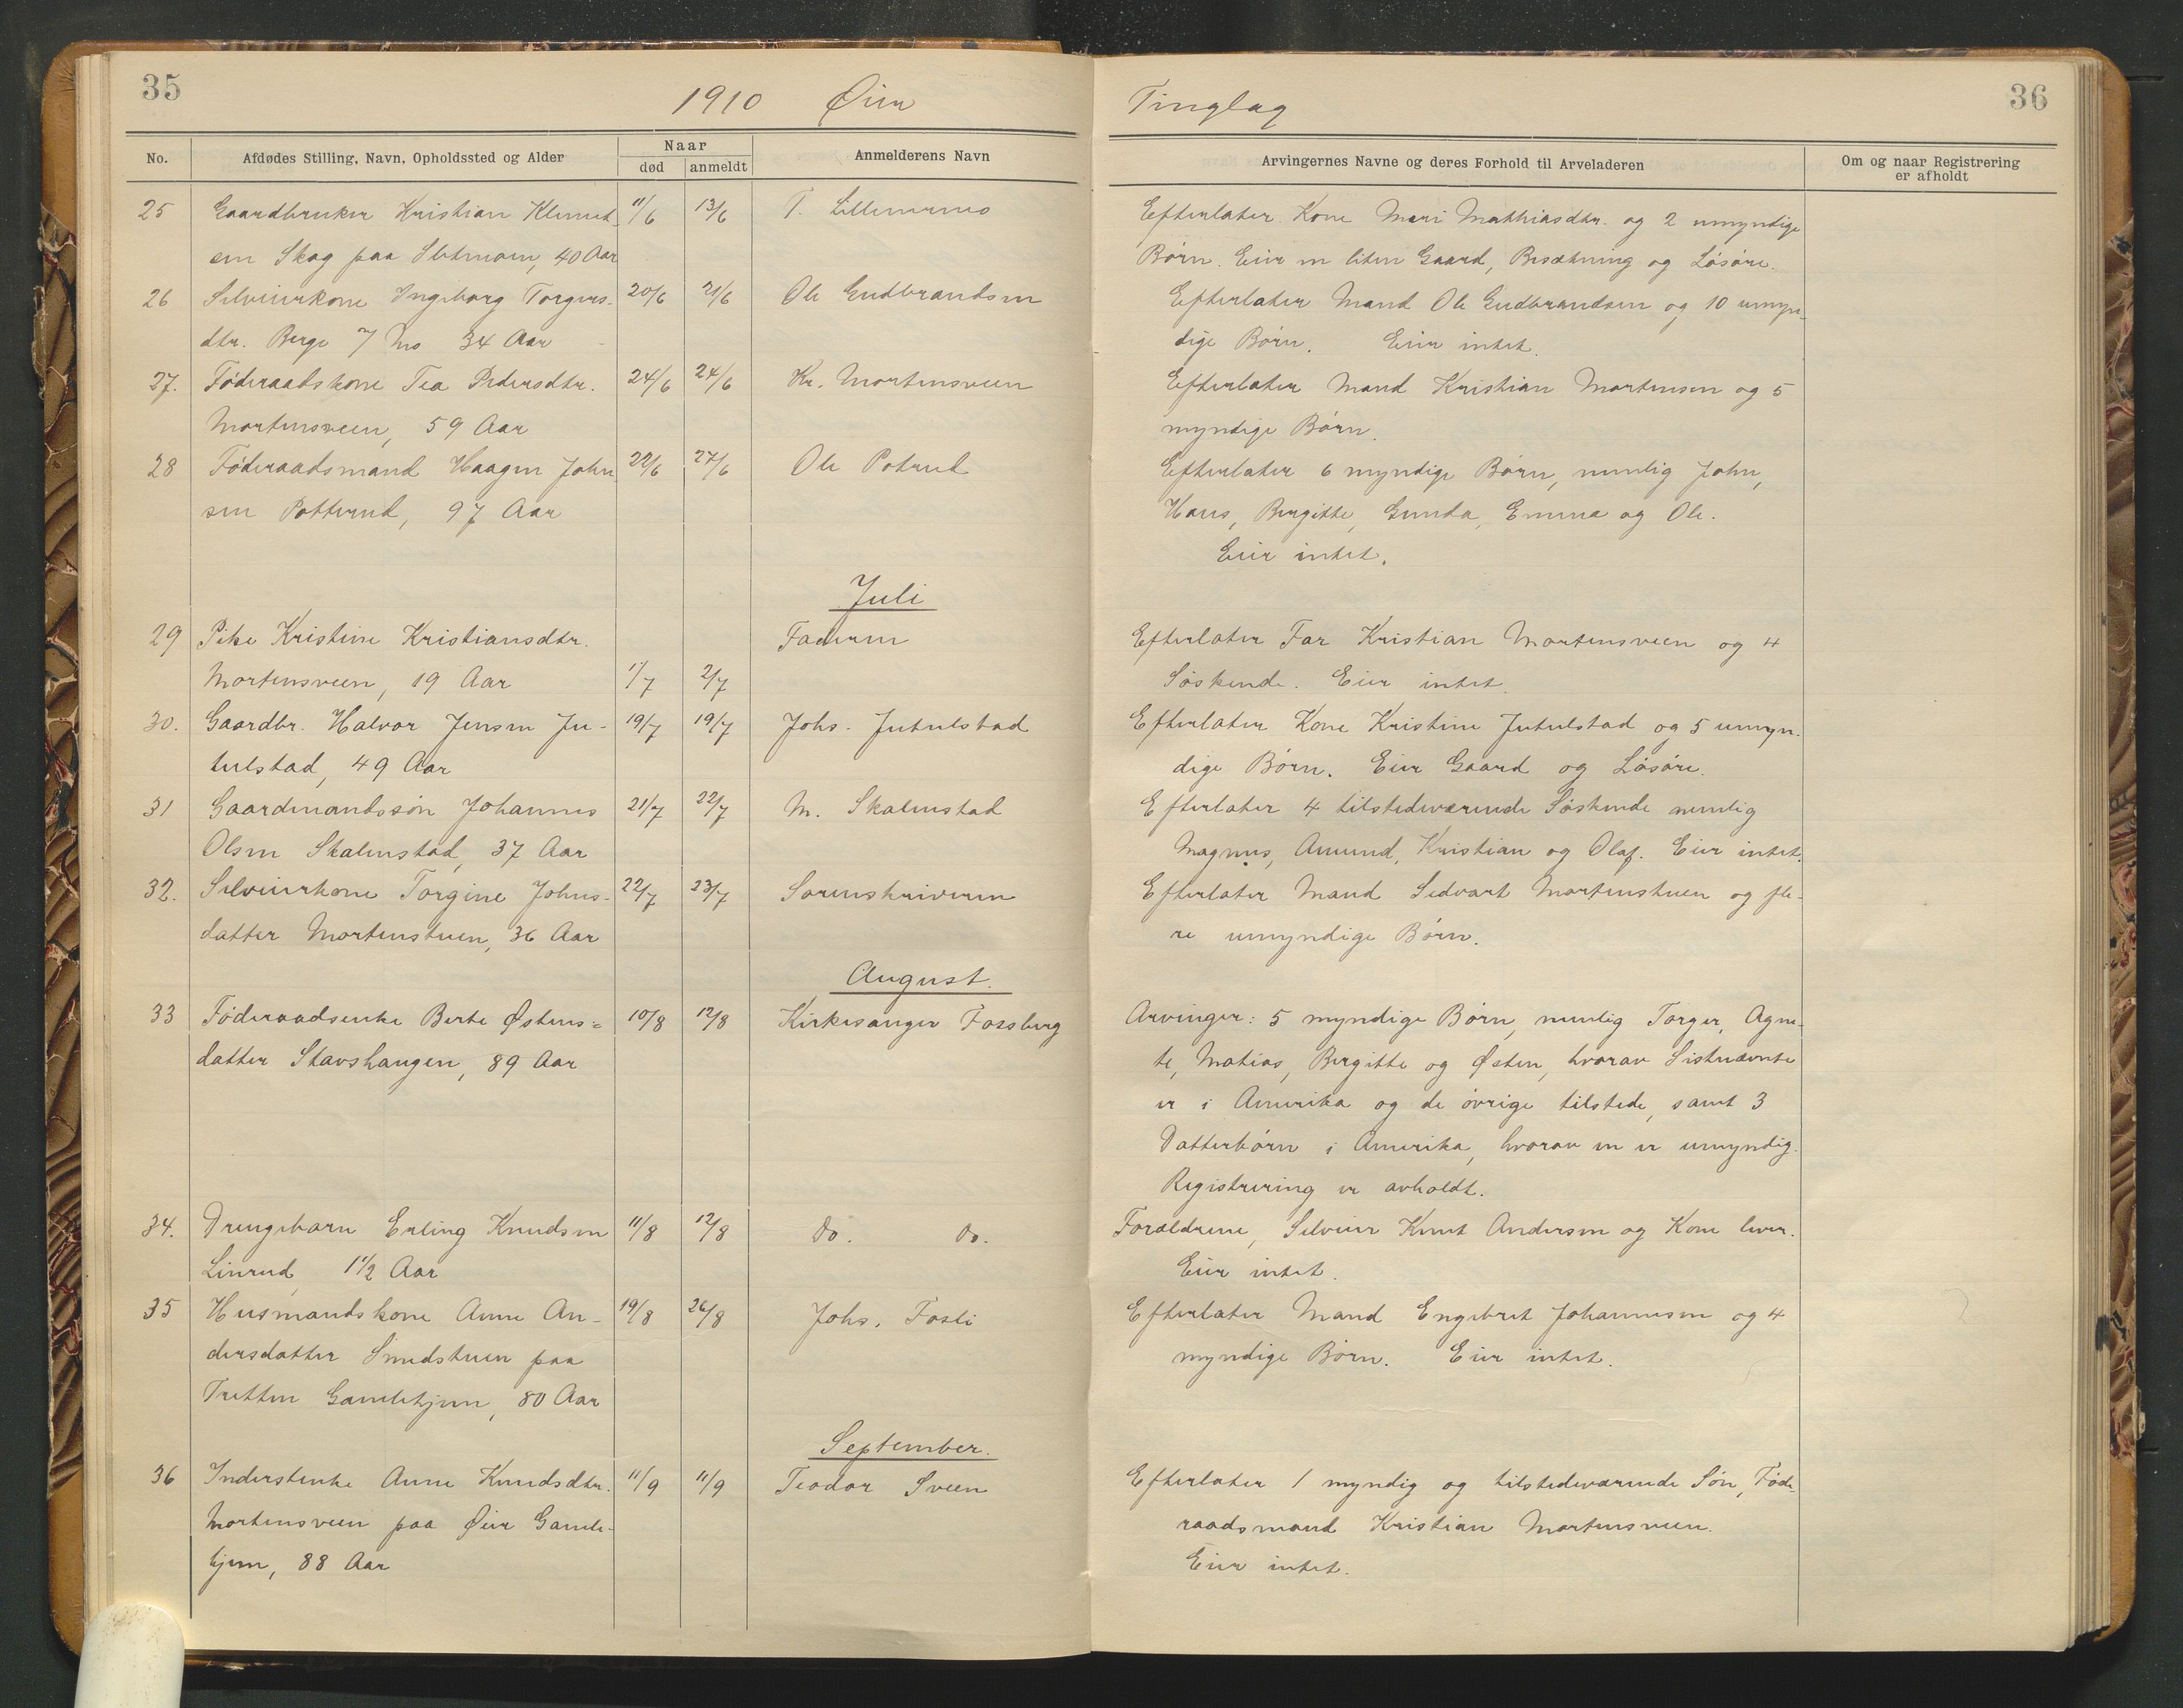 35
1910 Øier
No.
Afdødes Stilling, Navn, Opholdssted og Alder
Naar
død
anmeldt
Anmelderens Navn
25 Gaardbruker Kristian Klemet- 11/6 13/6 T. Lillemenes
sen Skog paa Sletmoen, 40 Aar
26 Selveierkone Ingeborg Torgers- 20/6 21/6 Ole Gudbrandsen
dtr. Berge 7 Mo 34 Aar
27. Føderaadskone Tea Pedersdtr. 24/6 24/6 Kr. Mortensveen
Mortensveen, 59 Aar
28 Føderaadsmand Haagen John 22/6 27/6 Ole Potrud
sen Potterud, 97 Aar
Juli
29 Pike Kristine Kristiansdtr. Faderen
Mortensveen, 19 Aar 1/7 2/7
30. Gaardbr. Halvor Jensen Ju- 19/7 19/7 Johs. Jutulstad
tulstad, 49 Aar
31 Gaardmandssøn Johannes 21/7 22/7 M. Skalmstad
Olsen Skalmstad, 37 Aar
32. Selveierkone Torgine Johns- 22/7 23/7 Sorenskriveren
datter Mortenstuen, 36 Aar
August.
33 Føderaadsenke Berte Østens= 10/8 12/8 Kirkesanger Fossberg
datter Stavshaugen, 89 Aar
34. Drengebarn Erling Knudsen 11/8 12/8 do. do.
Linrud, 1 1/2 Aar
35 Husmandskone Anne An- 19/8 26/8 Johs. Fosli
dersdatter Smedstuen paa
Tretten Gamlehjem, 80 Aar
September.
36 Inderstenke Anne Knudsdtr. 11/9 11/9 Teodor Sveen
Mortensveen paa Øier Gamle-
hjem, 88 Aar
Tinglag
36
Arvingernes Navne og deres Forhold til Arveladeren
Om og naar Registrering
er afholdt
Efterlater Kone Mari Mathiasdtr. og 2 umyndige
Børn. Eier en liten Gaard, Besætning og Løsøre.
Efterlater Mand Ole Gudbrandsen og 10 umyn-
dige Børn. Eier intet.
Efterlater Mand Kristian Mortensen og 5
myndige Børn.
Efterlater 6 myndige Børn, nemlig John,
Hans, Bergitte, Gunda, Emma og Ole.
Eier intet.
Efterlater Far Kristian Mortensveen og 4
Søskende. Eier intet.
Efterlater Kone Kristine Jutulstad og 5 umyn-
dige Børn. Eier Gaard og Løsøre.
Efterlater 4 tilstedeværende Søskende nemlig
Magnus, Amund, Kristian og Olaf. Eier intet.
Efterlater Mand Sedvart Mortenstuen og fle-
re umyndige Børn.
Arvinger: 5 myndige Børn, nemlig Torger, Agne-
te, Matias, Bergitte og Østen, hvorav Sistnævnte
er i Amerika og de øvrige tilstede, samt 3
Datterbørn i Amerika, hvorav en er umyndig.
Registrering er avholdt.
Forældrene, Selveier Knut Andersen og Kone lever.
Eier intet.
Efterlater Mand Engebret Johannesen og 4
myndige Børn. Eier intet.
Efterlater 1 myndig og tilstedeværende Søn, Føde-
raadsmand Kristian Mortensveen.
Eier intet.